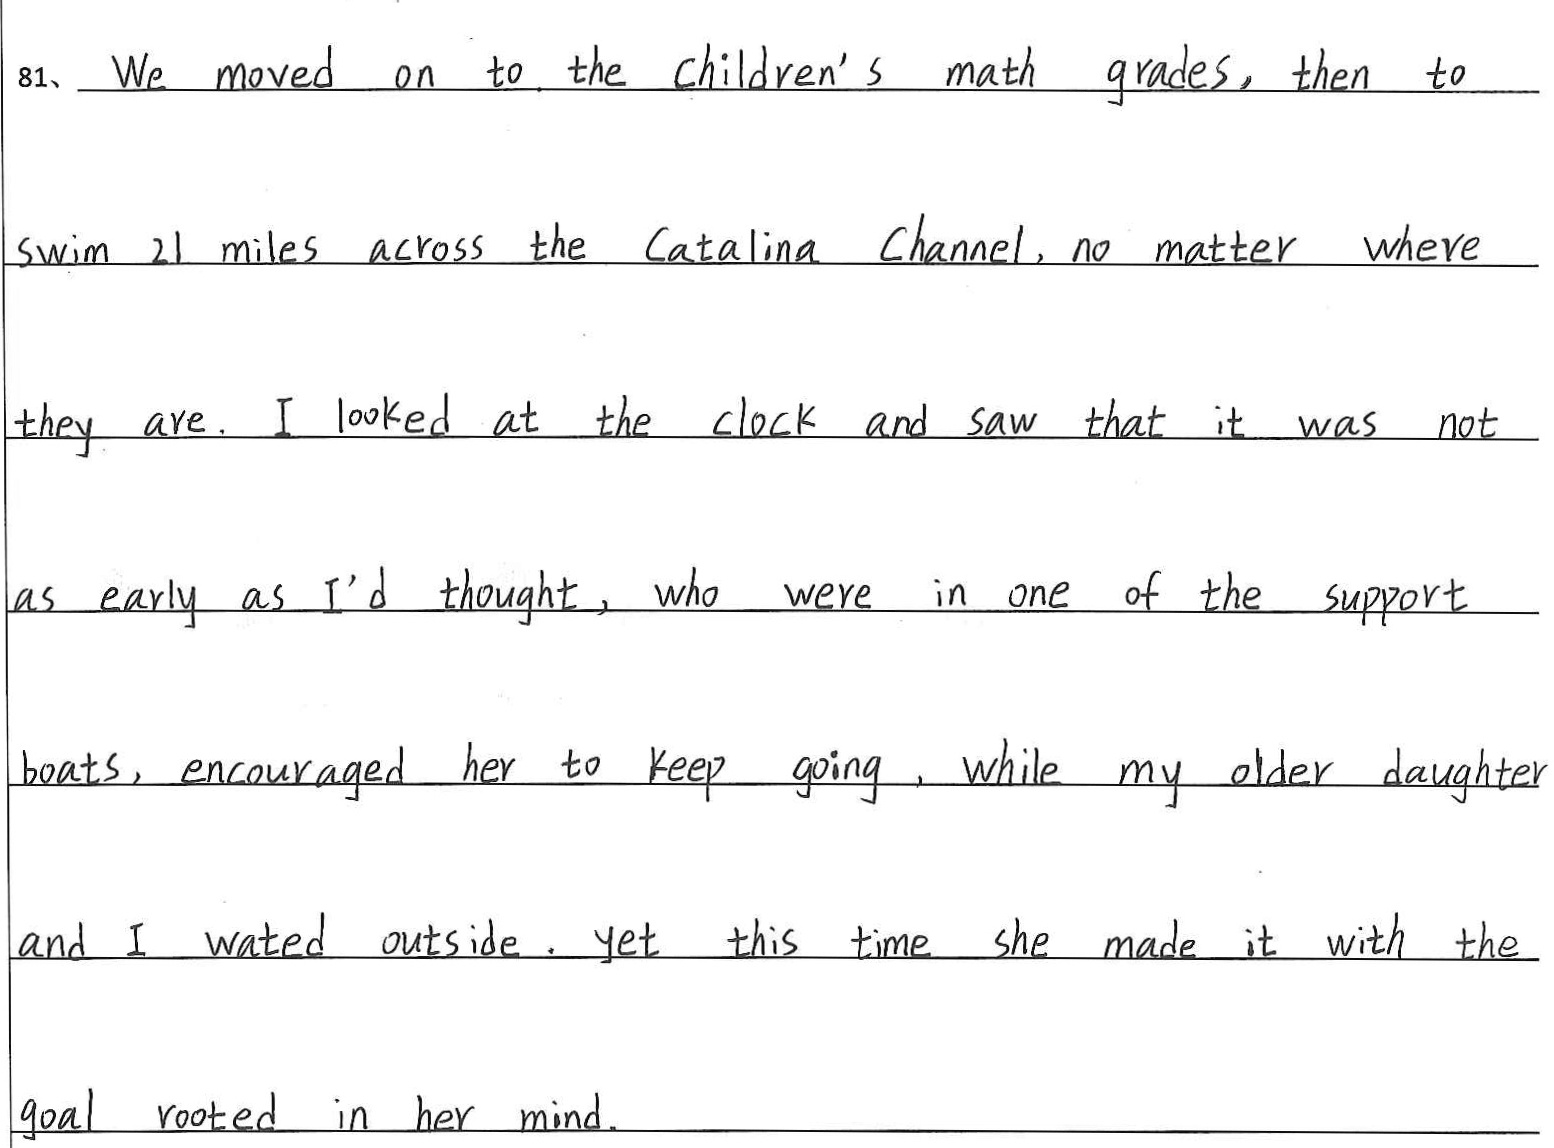 81、 We moved on to the children's math grades, then to
swim 21 miles across the Catalina Channel, no matter where
they are. I looked at the clock and saw that it was not
as early as I'd thought, who were in one of the support
boats, encouraged her to keep going, while my older daughter
and I wated outside. yet this time she made it with the
goal rooted in her mind.